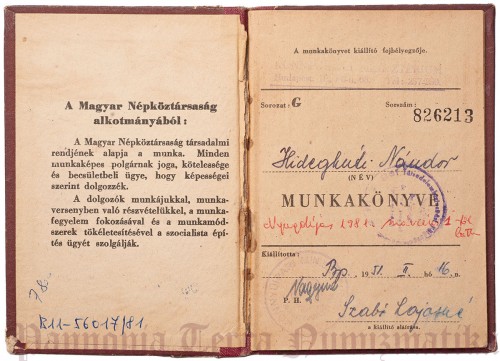 A Magyar Népköztársaság
alkotmányából:
A Magyar Népköztársaság társadalmi
rendjének alapja a munka. Minden
munkaképes polgárnak joga, kötelessége
és becsületbeli ügye, hogy képességei
szerint dolgozzék.
A dolgozók munkájukkal, munka-
versenyben való részvételükkel, a munka-
fegyelem fokozásával és a munkamód-
szerek tökéletesítésével a szocialista épí-
tés ügyét szolgálják.
B11-56017/81.
A munkakönyvet kiállító fejbélyegzője.
Sorozat: G
Sorszám:
826213
Hidegkuti Nándor
(NÉV)
MUNKAKÖNYVE
Nyugdíjas 1982
Kiállította:
Bp, 1951. II. hó 16.n.
P. H.
Szabó Lajosné
a kiállító aláírása.
Pannonia Terra Numizmatika